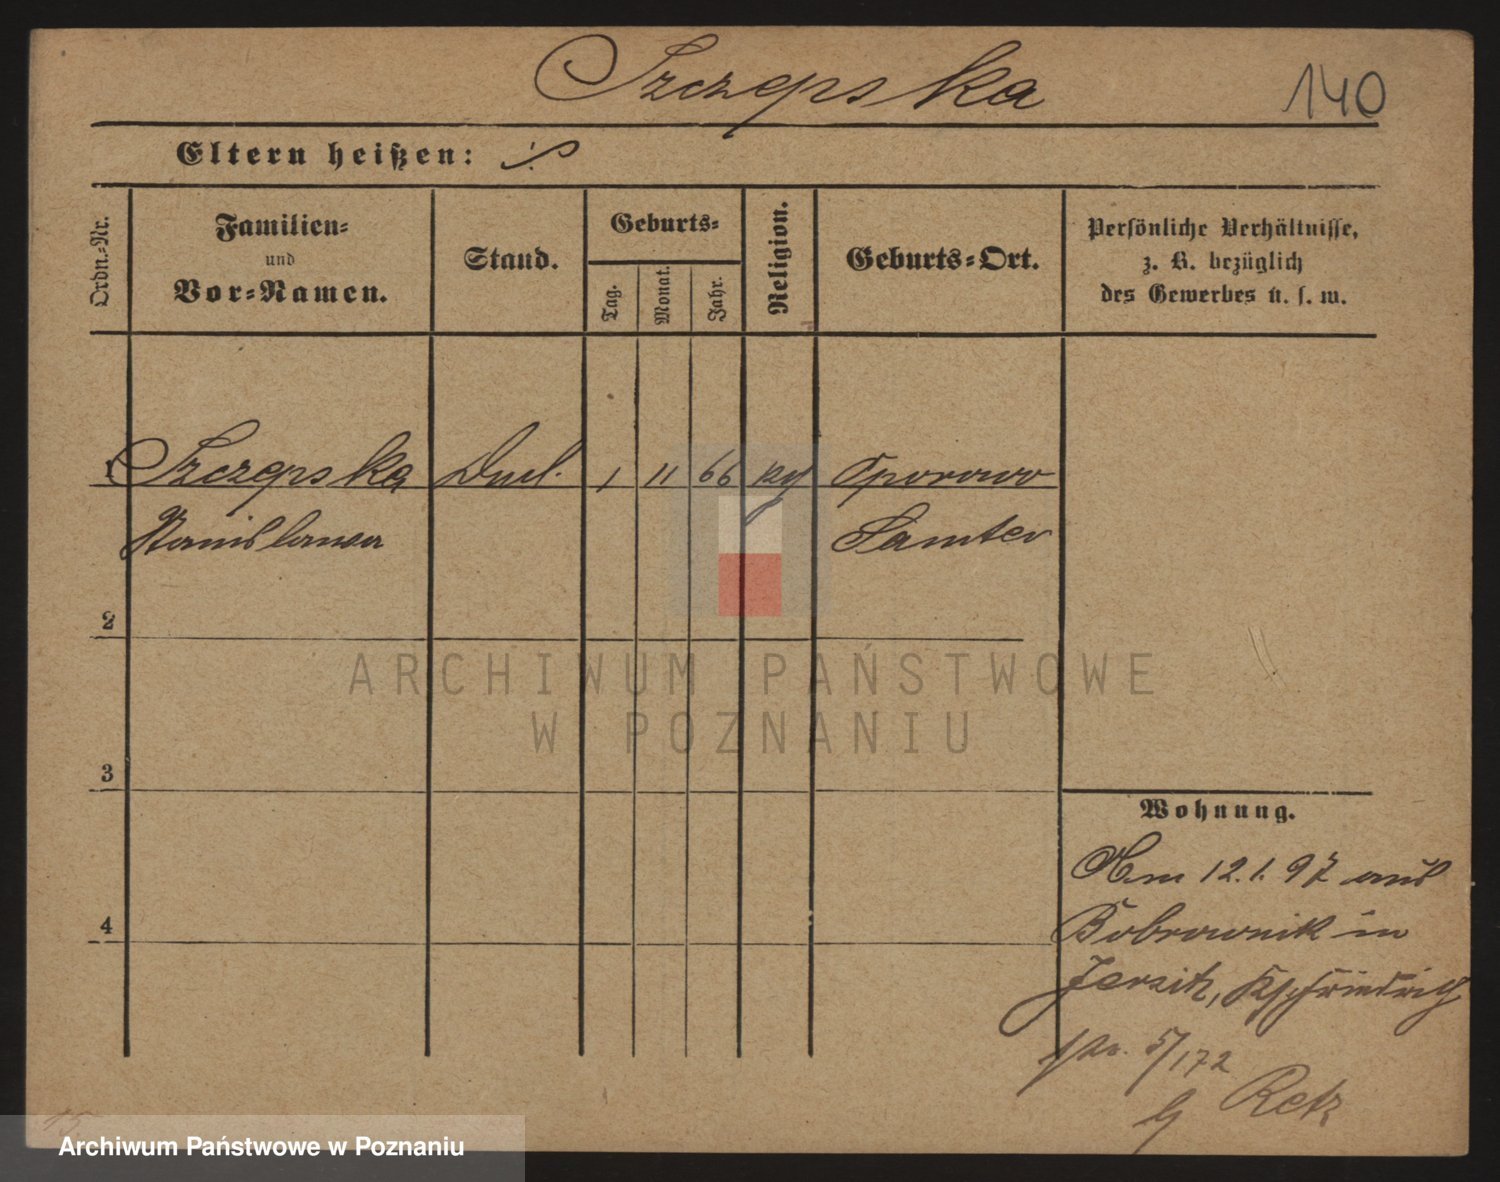 Szczepska
140
Eltern heißen:
Ordn.-Nr.
Familien-
und
Vor-Namen.
Stand.
Geburts-
Tag.
Monat.
Jahr.
Religion.
Geburts-Ort.
Persönliche Verhältnisse,
z. B. bezüglich
des Gewerbes u. s. w.
1 Szczepska 1 11 66 Oporowo
Stanislawa Samter
2
3
4
ARCHIWUM PAŃSTWOWE
W POZNANIU
Wohnung.
Am 12.1.97 aus
Bobrownik in
Jersitz, Kfriedrich
5/172
Retz
Archiwum Państwowe w Poznaniu